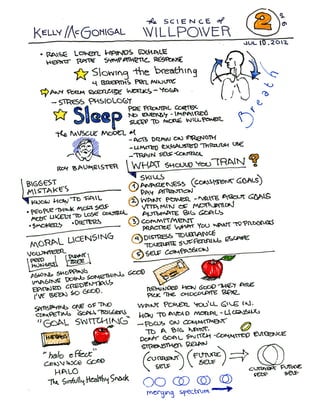 KELLY McGONIGAL
the SCIENCE of
WILLPOWER
2
JUL 10, 2012
• RAISE LOWER HANDS EXHALE
HEART RATE SYMPATHETIC RESPONSE
Slowing the breathing
4 BREATHS PER MINUTE
ANY FORM EXERCISE WORKS - YOGA
- STRESS PHYSIOLOGY
Breath
Sleep
PRE FRONTAL CORTEX
NO ENERGY - IMPAIRED
SLEEP TO MORE WILLPOWER
The MUSCLE MODEL
- ACTS DRAWN ON STRENGTH
- LIMITED EXHAUSTED THROUGH USE
- TRAIN SELF-CONTROL
ROY BAUMEISTER
WHAT SHOULD YOU TRAIN?
SKILLS
1 AWARENESS (CONSISTENT GOALS)
PAY ATTENTION
2 WANT POWER - WRITE ABOUT GOALS
VITAMIN OF MOTIVATION
AUTOMATE BIG GOALS
3 COMMITMENT
PRACTICE WHAT YOU WANT TO
4 DISTRESS TOLERANCE
TOLERATE SUFFERING
5 SELF COMPASSION
BIGGEST
MISTAKES
KNOW HOW TO FAIL
• PEOPLE THINK MOST SELF
MOST LIKELY TO LOSE CONTROL
• SMOKERS - DIETERS
MORAL LICENSING
VOLUNTEER
ASKING SHOPPERS
IMAGINE DOING SOMETHING GOOD
EXPAND CREDENTIALS
I'VE BEEN SO GOOD.
REMINDED HOW GOOD THEY ARE
PICK THE CHOCOLATE BAR
SATISFYING ONE OF TWO
COMPETING GOALS TRIGGERS
"GOAL SWITCHING"
"halo effect"
CONVINCE GOOD
HALO
The Sinfully Healthy Snack
WANT POWER YOU'LL GIVE IN.
HOW TO AVOID MORAL - LICENSING
- FOCUS ON COMMITMENT
TO A BIG WANT.
DON'T GOAL SWITCH - COMMITTED EVIDENCE
STRENGTHEN
CURRENT SELF
FUTURE SELF
CURRENT SELF
FUTURE SELF
merging spectrum